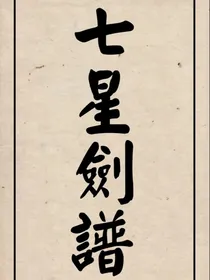 七星劍譜